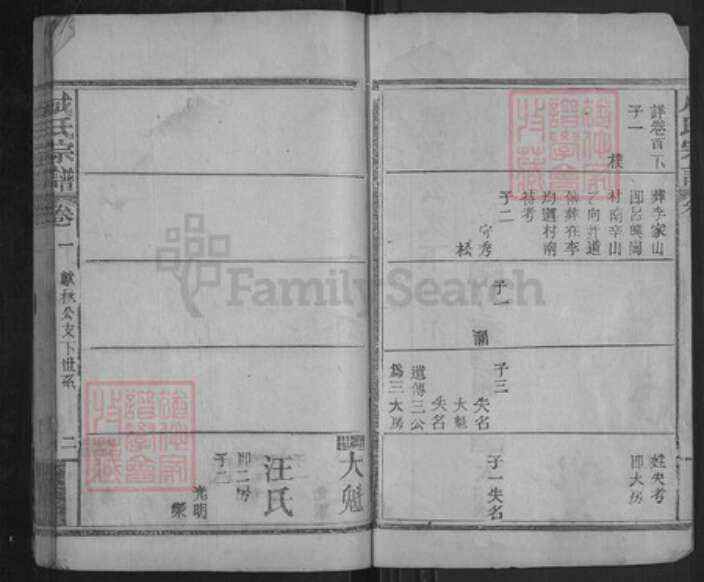 詳卷首下
子一
樸
葬李家山
即呂興崗
村南辛山
乙向井道
偹葬在李
均選村南
待考
子二
守秀
松
子一
子三
失名
大魁
失名
遺傳三公
爲三大房
姓失考
即大房
子一失名
氏宗譜
卷一
秋公支下世系
二
大魁
汪氏
即二房
子二
光明
榮
FamilySearch